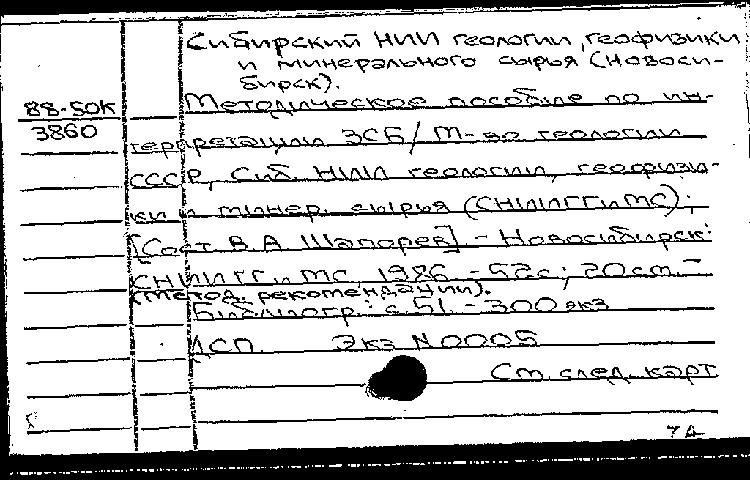 Сибирский НИИ геологии, геофизики
и минерального сырья (Новоси-
бирск).
88-50К
Методическое пособие по ин-
3860
терпретации ЗСБ / М-во геологии
СССР, Сиб. НИИ геологии, геофизи-
ки и минер. сырья (СНИИГГиМС);
[Сост. В.А. Шапорев]. - Новосибирск:
СНИИГГиМС, 1986. - 52с; 20см. -
(Метод. рекомендации).
Библиогр.: с.51. - 300 экз
1СП. Экз N0005
См. след. карт